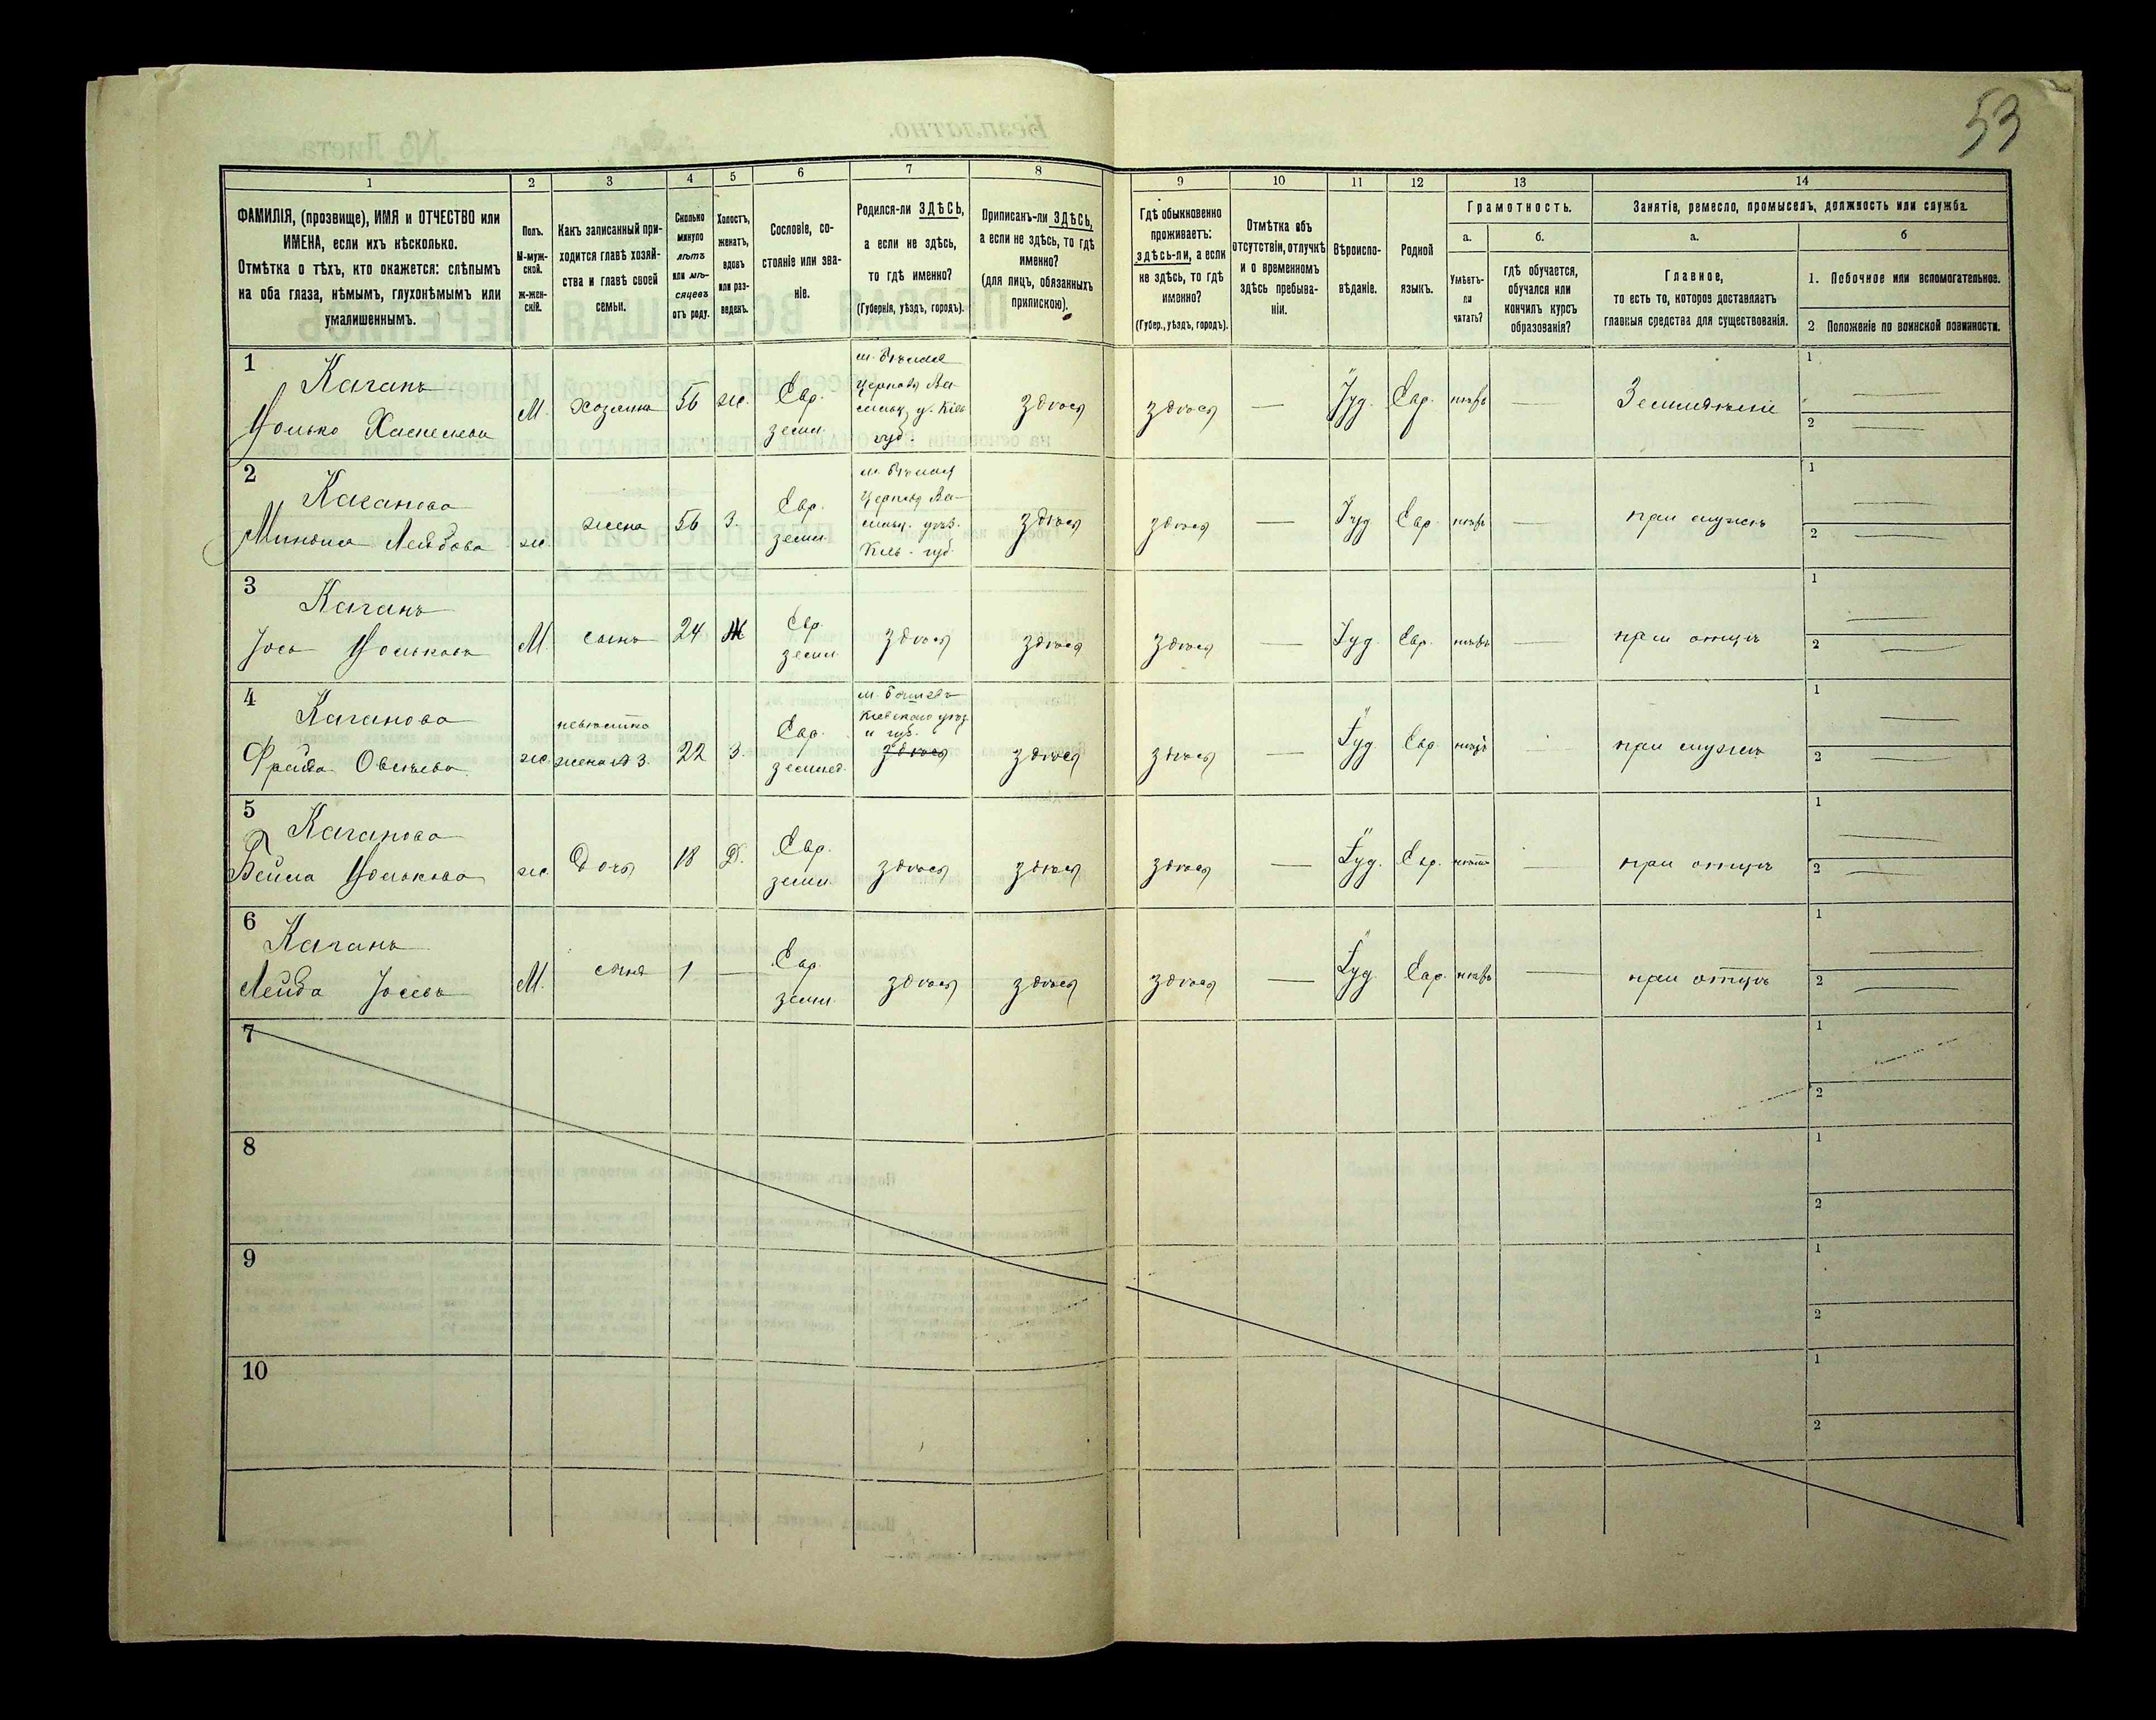 53
1
2
3
4
5
6
7
8
9
10
11
12
13
14
ФАМИЛІЯ, (прозвище), ИМЯ и ОТЧЕСТВО или
ИМЕНА, если ихъ нѣсколько.
Отмѣтка о тѣхъ, кто окажется: слѣпымъ
на оба глаза, нѣмымъ, глухонѣмымъ или
умалишеннымъ.
Полъ.
М-муж-
ской.
Ж-жен-
скій.
Какъ записанный при-
ходится главѣ хозяй-
ства и главѣ своей
семьи.
Сколько
минуло
лѣтъ
или мѣ-
сяцевъ
отъ роду.
Холостъ,
женатъ,
вдовъ
или раз-
веденъ.
Сословіе, со-
стояніе или зва-
ніе.
Родился-ли ЗДѢСЬ,
а если не здѣсь,
то гдѣ именно?
(Губернія, уѣздъ, городъ).
Приписанъ-ли ЗДѢСЬ,
а если не здѣсь, то гдѣ
именно?
(для лицъ, обязанныхъ
припискою).
Гдѣ обыкновенно
проживаетъ:
здѣсь-ли, а если
не здѣсь, то гдѣ
именно?
(Губер., уѣздъ, городъ).
Отмѣтка объ
отсутствіи, отлучкѣ
и о временномъ
здѣсь пребыва-
ніи.
Вѣроиспо-
вѣданіе.
Родной
языкъ.
Грамотность.
а.
Умѣетъ-
ли
читать?
б.
гдѣ обучается,
обучался или
кончилъ курсъ
образованія?
Занятіе, ремесло, промыселъ, должность или служба.
а.
Главное,
то есть то, которое доставляетъ
главныя средства для существованія.
б
1. Побочное или вспомогательное.
2 Положеніе по воинской повинности.
1
Каганъ
М.
хозяинъ
56
ж.
Евр.
земл.
здѣсь
здѣсь
—
Іуд.
Евр.
нѣтъ
—
Земледѣліе
1 —
2 —
2
Каганова
Лейбова
ж
жена
56
З.
Евр.
земл.
здѣсь
здѣсь
—
Іуд
Евр.
нѣтъ
—
при мужѣ
1 —
2 —
3
Каганъ
М.
сынъ
24
Ж
Евр.
земл.
здѣсь
здѣсь
здѣсь
—
Іуд.
Евр.
нѣтъ
—
при отцѣ
1 —
2 —
4
Каганова
Фрейда
ж.
невѣстка
жена № 3.
22
З.
Евр.
землед.
Кіевскаго уѣз.
и губ.
здѣсь
здѣсь
здѣсь
—
Іуд.
Евр.
нѣтъ
при мужѣ
1 —
2 —
5
Каганова
Бейла
ж.
Дочь
18
Д.
Евр.
земл.
здѣсь
здѣсь
здѣсь
—
Іуд.
Евр.
нѣтъ
—
при отцѣ
1 —
2 —
6
Каганъ
Лейба Іосевъ
М.
1
—
Евр.
земл.
здѣсь
здѣсь
здѣсь
—
Іуд.
Евр.
нѣтъ
—
при отцѣ
1 —
2 —
7
1
2
8
1
2
9
1
2
10
1
2